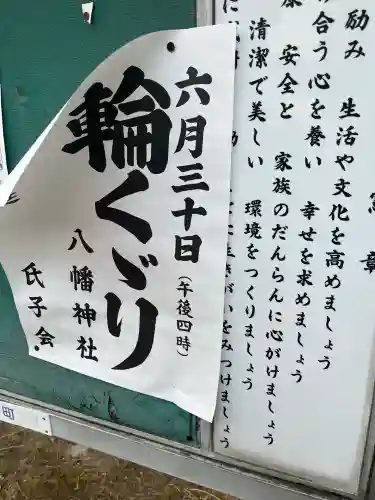 憲章
励み 生活や文化を高めましょう
合う心を養い 幸せを求めましょう
安全と 家族のだんらんに心がけましょう
清潔で美しい 環境をつくりましょう
生きがいをみつけましょう
六月三十日(午後四時
輪くゞり
八幡神社
氏子会
町